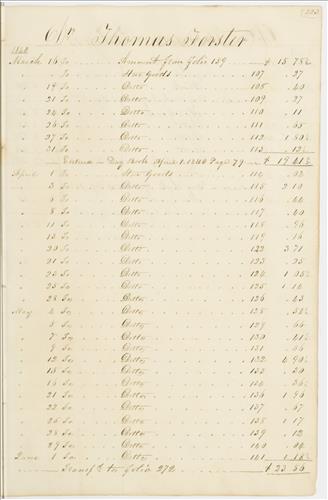 Cr. Thomas Forster
1840
March 16 To Amount from folio 159 $ 15 78½
" To Stor Goods 107 . 27
" 19 To Ditto 108 . 40
" 21 To Ditto 109 . 27
" 24 To Ditto 110 . 11
" 26 To Ditto 111 . 65
" 27 To Ditto 112 1 80½
" 31 To Ditto 113 . 12½
Entered in Day Book April 1. 1840 Page 79 $ 19 41½
April 1 To Stor Goods 114
" 3 To Ditto 115 2 10
" 6 To Ditto 116 . 44
" 8 To Ditto 117 . 40
" 11 To Ditto 118 . 96
" 13 To Ditto 119 . 16
" 20 To Ditto 122 3 71
" 21 To Ditto 123 . 25
" 23 To Ditto 124 1 05½
" 25 To Ditto 125 1 14
" 28 To Ditto 126 . 43
May 4 To Ditto 128
" 5 To Ditto 129 . 66
" 7 To Ditto 130 . 41½
" 9 To Ditto 131 . 66
" 12 To Ditto 132 4 90½
" 15 To Ditto 133 . 30
" 16 To Ditto 134
" 21 To Ditto 136 1 96
" 22 To Ditto 137 . 67
" 26 To Ditto 138 1 17
" 28 To Ditto 139 . 12
" 29 To Ditto 140
June 1 To Ditto 141 1 18½
Transfd to folio 272 $ 23 56